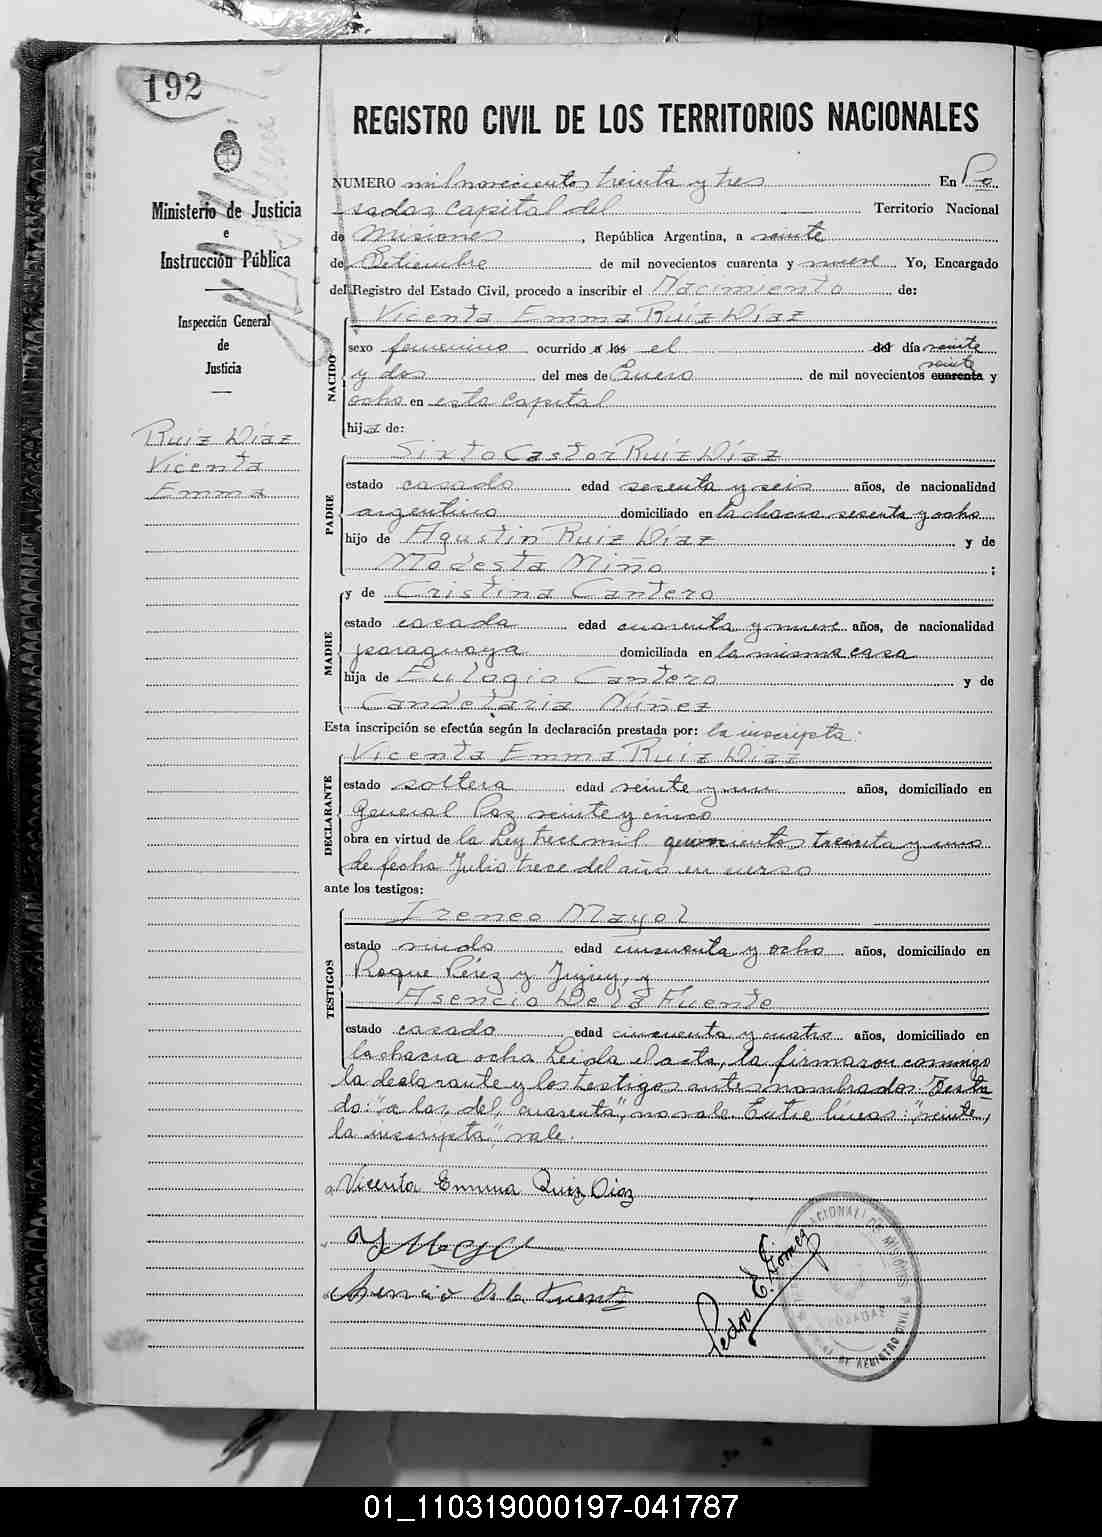 192
REGISTRO CIVIL DE LOS TERRITORIOS NACIONALES
Ministerio de Justicia
e
Instrucción Pública
Inspección General
de
Justicia
Ruiz Díaz
Vicenta
Emma
NUMERO mil novecientos treinta y tres En Po
sadas, capital del Territorio Nacional
de Misiones, República Argentina, a veinte
de Setiembre de mil novecientos cuarenta y nueve Yo, Encargado
del Registro del Estado Civil, procedo a inscribir el Nacimiento de:
Vicenta Emma Ruiz Diaz
NACIDO
sexo femenino ocurrido a las el del día veinte
veinte
y dos del mes de Enero de mil novecientos cuarenta y
ocho en esta capital
hija de:
Sixto Castor Ruiz Díaz
PADRE
estado casado edad sesenta y seis años, de nacionalidad
argentino domiciliado en la chacra sesenta y ocho
hijo de Agustin Ruiz Díaz y de
Modesta Miño ;
y de Cristina Cantero
MADRE
estado casada edad cuarenta y nueve años, de nacionalidad
paraguaya domiciliada en la misma casa
hija de Eulogio Cantero y de
Candelaria Núñez
Esta inscripción se efectúa según la declaración prestada por: la inscripta:
Vicenta Emma Ruiz Diaz
DECLARANTE
estado soltera edad veinte y un años, domiciliado en
General Paz veinte y cinco
obra en virtud de la Ley trece mil quinientos treinta y uno
de fecha Julio trece del año en curso
ante los testigos:
Ireneo Mayol
TESTIGOS
estado viudo edad cincuenta y ocho años, domiciliado en
Roque Pérez y Jujuy, y
Asencio De la Fuente
estado casado edad cincuenta y cuatro años, domiciliado en
la chacra ocho Leida el acta, la firmaron conmigo
la declarante y los testigos antes nombrados. Testa
do: "a las, del, cuarenta", no vale. Entre líneas: "veinte,
la inscripta", vale.
Vicenta Emma Ruiz Diaz
Asencio De la Fuente
Pedro E. Gomez
POSADAS
01_110319000197-041787